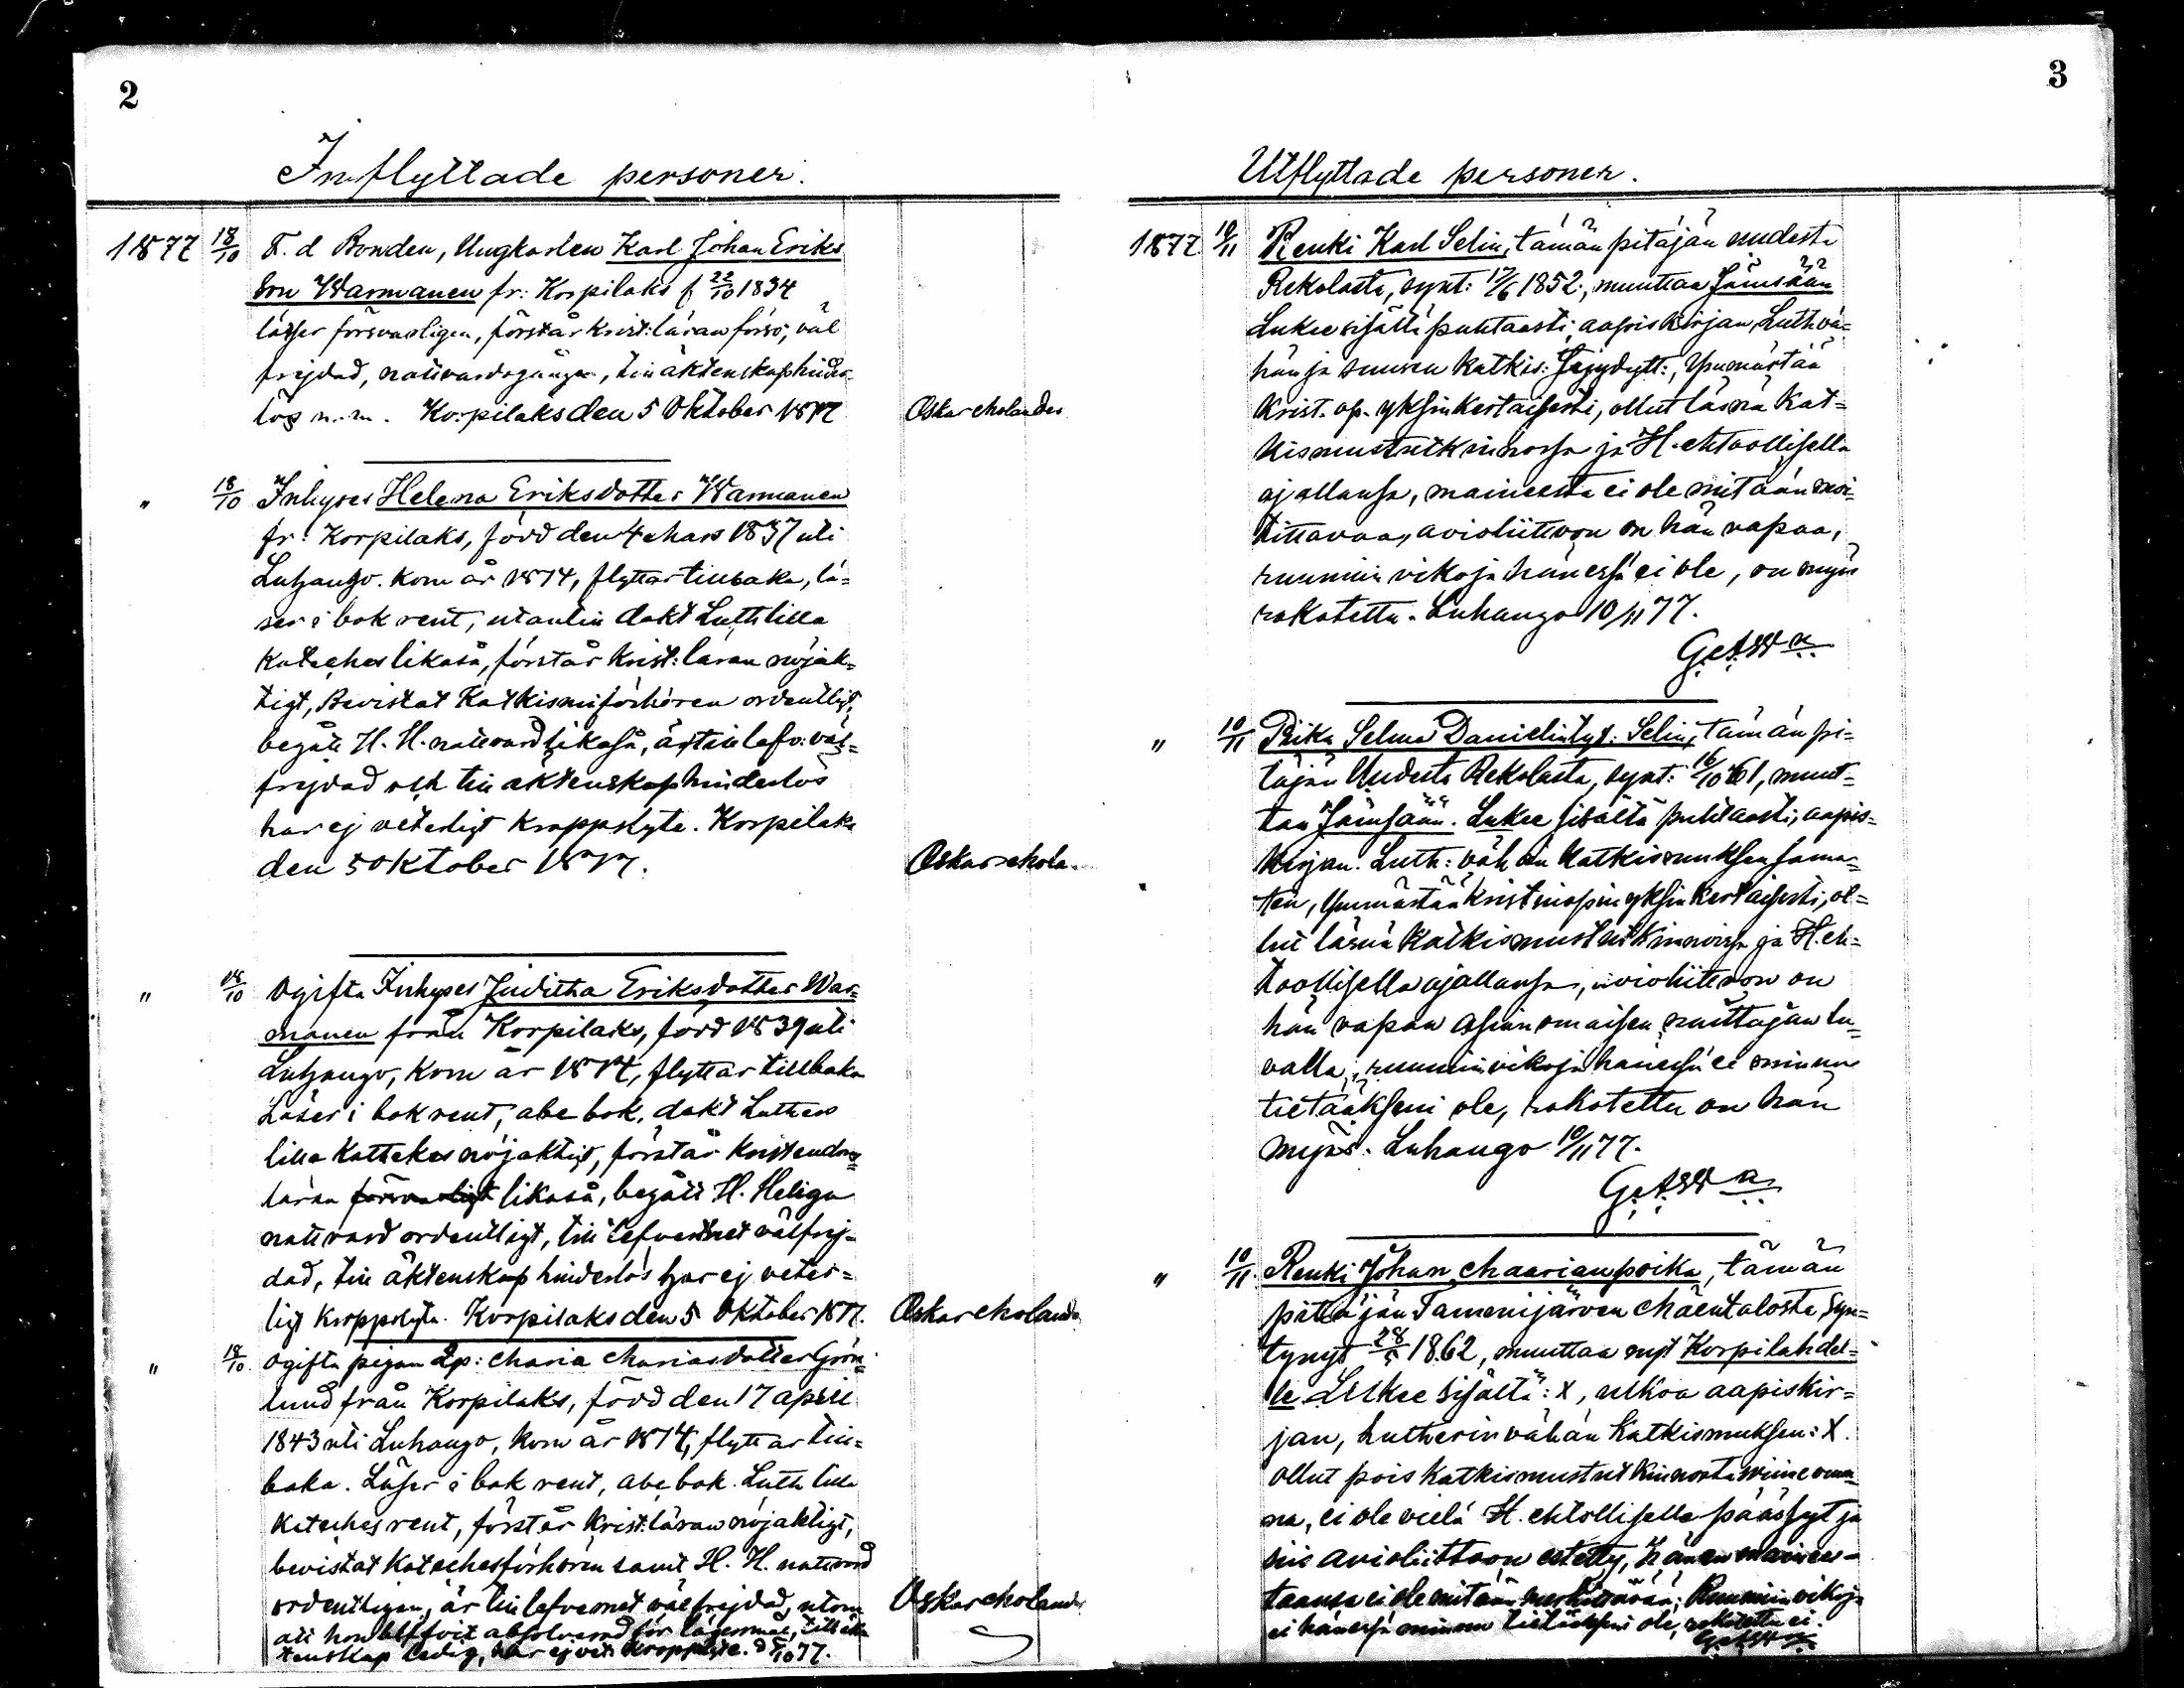 2
Inflyttade personer.
1877 18/10 F. d Bonden, Ungkarlen Karl Johan Eriks
son Warmanen fr: Korpilaks f 22/10 1834
läser försvarligen, förstår Krist: läran försv; väl
frejdad, nattvardsgången, till äktenskap hinder-
lös m.m. Korpilaks den 5 Oktober 1877 Oskar Molander
" 18/10 Inhyses Helena Eriksdotter Warmanen
fr: Korpilaks, född den 4 Mars 1837 uti
Luhango. Kom år 1874, flyttar tillbaka, lä=
ser i bok rent, utantill dakt Luth lilla
Kateches likaså, förstår Krist: läran nöjak=
tigt, Bevistat Katkismiförhören ordentligt,
begått H. H. nattvard likaså, är till lefv: väl=
frejdad och till äktenskap hinderlös
har ej veterligt kroppslyte. Korpilaks
den 5 Oktober 1877. Oskar Mola
" 18/10 Ogifta Inhyses Juditha Eriksdotter War=
manen från Korpilaks, född 1839 uti
Luhango, Kom år 1874, flyttar tillbaka
Läser i bok rent, abe bok, dakt Luthers
lilla Kattekes nöjaktigt, förstår Kristendoms
läran försvarligt likaså, begått H. Heliga
nattvard ordentligt, till lefvernet välfrej-
dad, till äktenskap hinderlös har ej veter=
ligt kroppslyte. Korpilaks den 5 Oktober 1877. Oskar Molander
" 18/10 Ogifta pigan Lp: Maria Mariasdotter Grön
lund från Korpilaks, född den 17 april
1843 uti Luhango, kom år 1874, flyttar till=
baka. Läser i bok rent, abe bok Luth lilla
Kateches rent, förstår Krist: läran nöjaktigt,
bevistat Katechesförhören samt H. H. nattvard
ordentligen, är till lefvernet välfrejdad, utom
att hon blifvit absolverad för lägersmål, till äk
tenskap ledig, har ej vet: kroppslyte. d 5/10 77. Oskar Molander
3
Utflyttade personer.
1877. 10/11 Renki Karl Selin, tämän pitäjän uudesta
Rekolasta, synt: 17/6 1852, muuttaa Jämsään
Lukee sisältä puhtaasti, aapiskirjan, Luth vä=
hän ja suuren Katkis: , Ymmärtää
Krist. op. yksinkertaisesti, ollut läsnä Kat=
kismustutkinnossa ja H. ehtoollisella
ajallansa, maineesta ei ole mitään moi-
tittavaa, avioliittoon on hän vapaa,
ruumiin vikoja hänessä ei ole, on myös
rokotettu. Luhango 10/11 77.
G. A. W
" 10/11 Piika Selma Danielintyt: Selin, tämän pi=
täjän Uudesta Rekolasta, synt: 16/10 61, muut=
taa Jämsään. Lukee sisältä puhtaasti, aapis=
kirjan. Luth: vähän Katkismuksen sama=
ten, Ymmärtää Kristinopin yksinkertaisesti, ol=
lut läsnä Katkismustutkinnoissa ja H. eh=
toollisella ajallansa, avioliittoon on
hän vapaa asianomaisen naittajan lu=
valla, ruumiin vikoja hänessä ei minun
tietääkseni ole, rokotettu on hän
myös. Luhango 10/11 77.
G. A. W
" 10/11. Renki Johan Maarianpoika, tämän
pitäjän Tammijärven Mäentalosta, syn=
tynyt 28/5 1862, muuttaa nyt Korpilahdel=
le. Lukee sisältä: X, ulkoa aapiskir=
jan, Lutherin vähän Katkismuksen: X.
ollut pois Katkismustutkinnosta viime vuon
na, ei ole vielä H. ehtollisella päässyt ja
siis avioliittoon estetty, hänen mainees-
taansa ei ole mitään merkittävää; Ruumiin vikoja
ei hänessä minun tietääkseni ole, rokotettu ei.
G. A. W